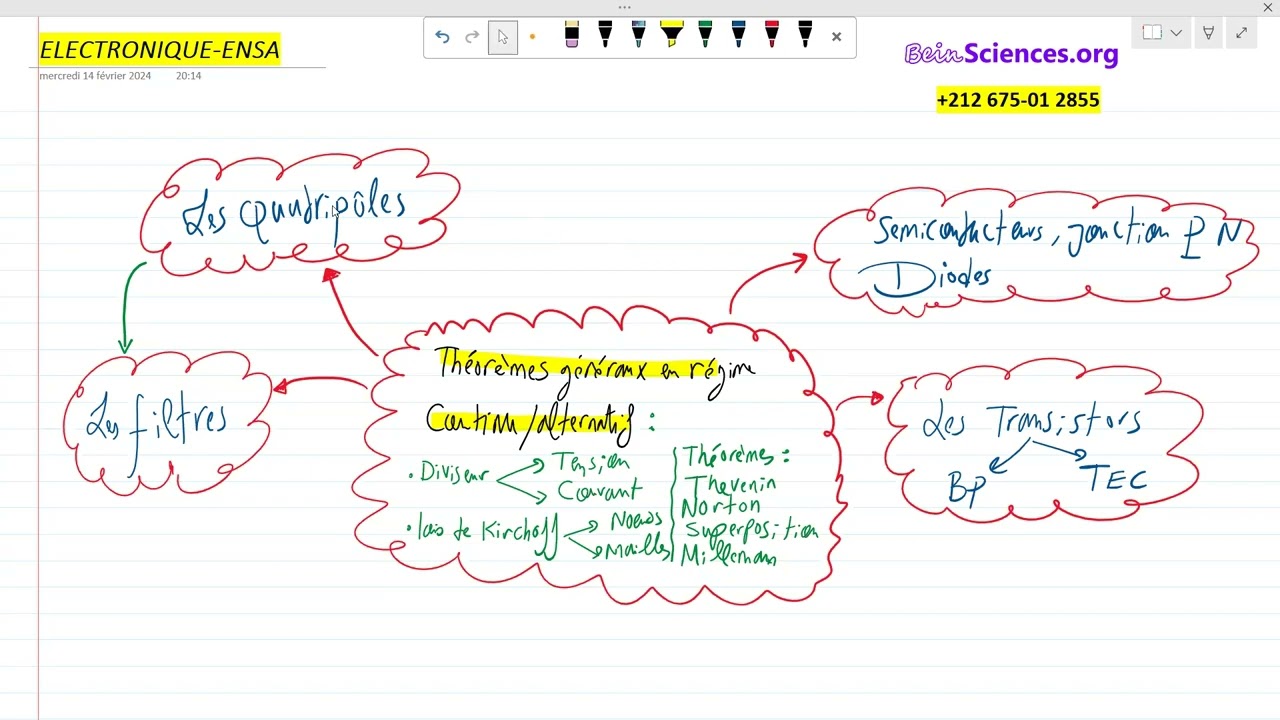 ELECTRONIQUE-ENSA
mercredi 14 février 2024 20:14
BeinSciences.org
+212 675-01 2855
Les quadripôles
Semiconducteurs, jonction PN
Diodes
Théorèmes généraux en régime
Continu/alternatif :
• Diviseur
Tension
Courant
• lois de Kirchoff
Noeuds
Mailles
Théorèmes :
Thevenin
Norton
Superposition
Millemann
Les filtres
Les Transistors
BP
TEC